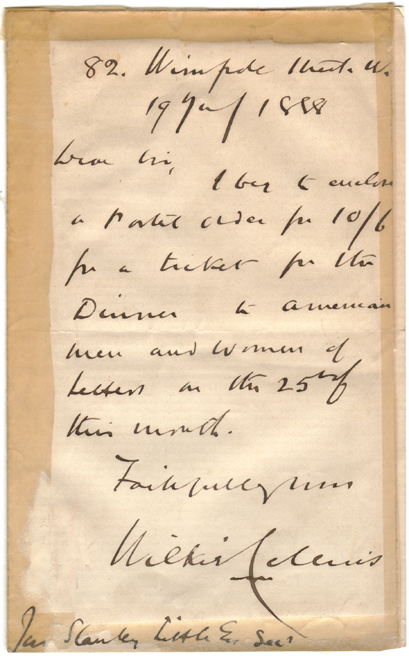 82. Wimpole Street. W.
19 July 1888
Dear Sir,
I beg to enclose
a Postal order for 10/6
for a ticket for the
Dinner to American
men and women of
Letters on the 25th of
this month.
Faithfully yours
Wilkie Collins
Jas Stanley Little Esq